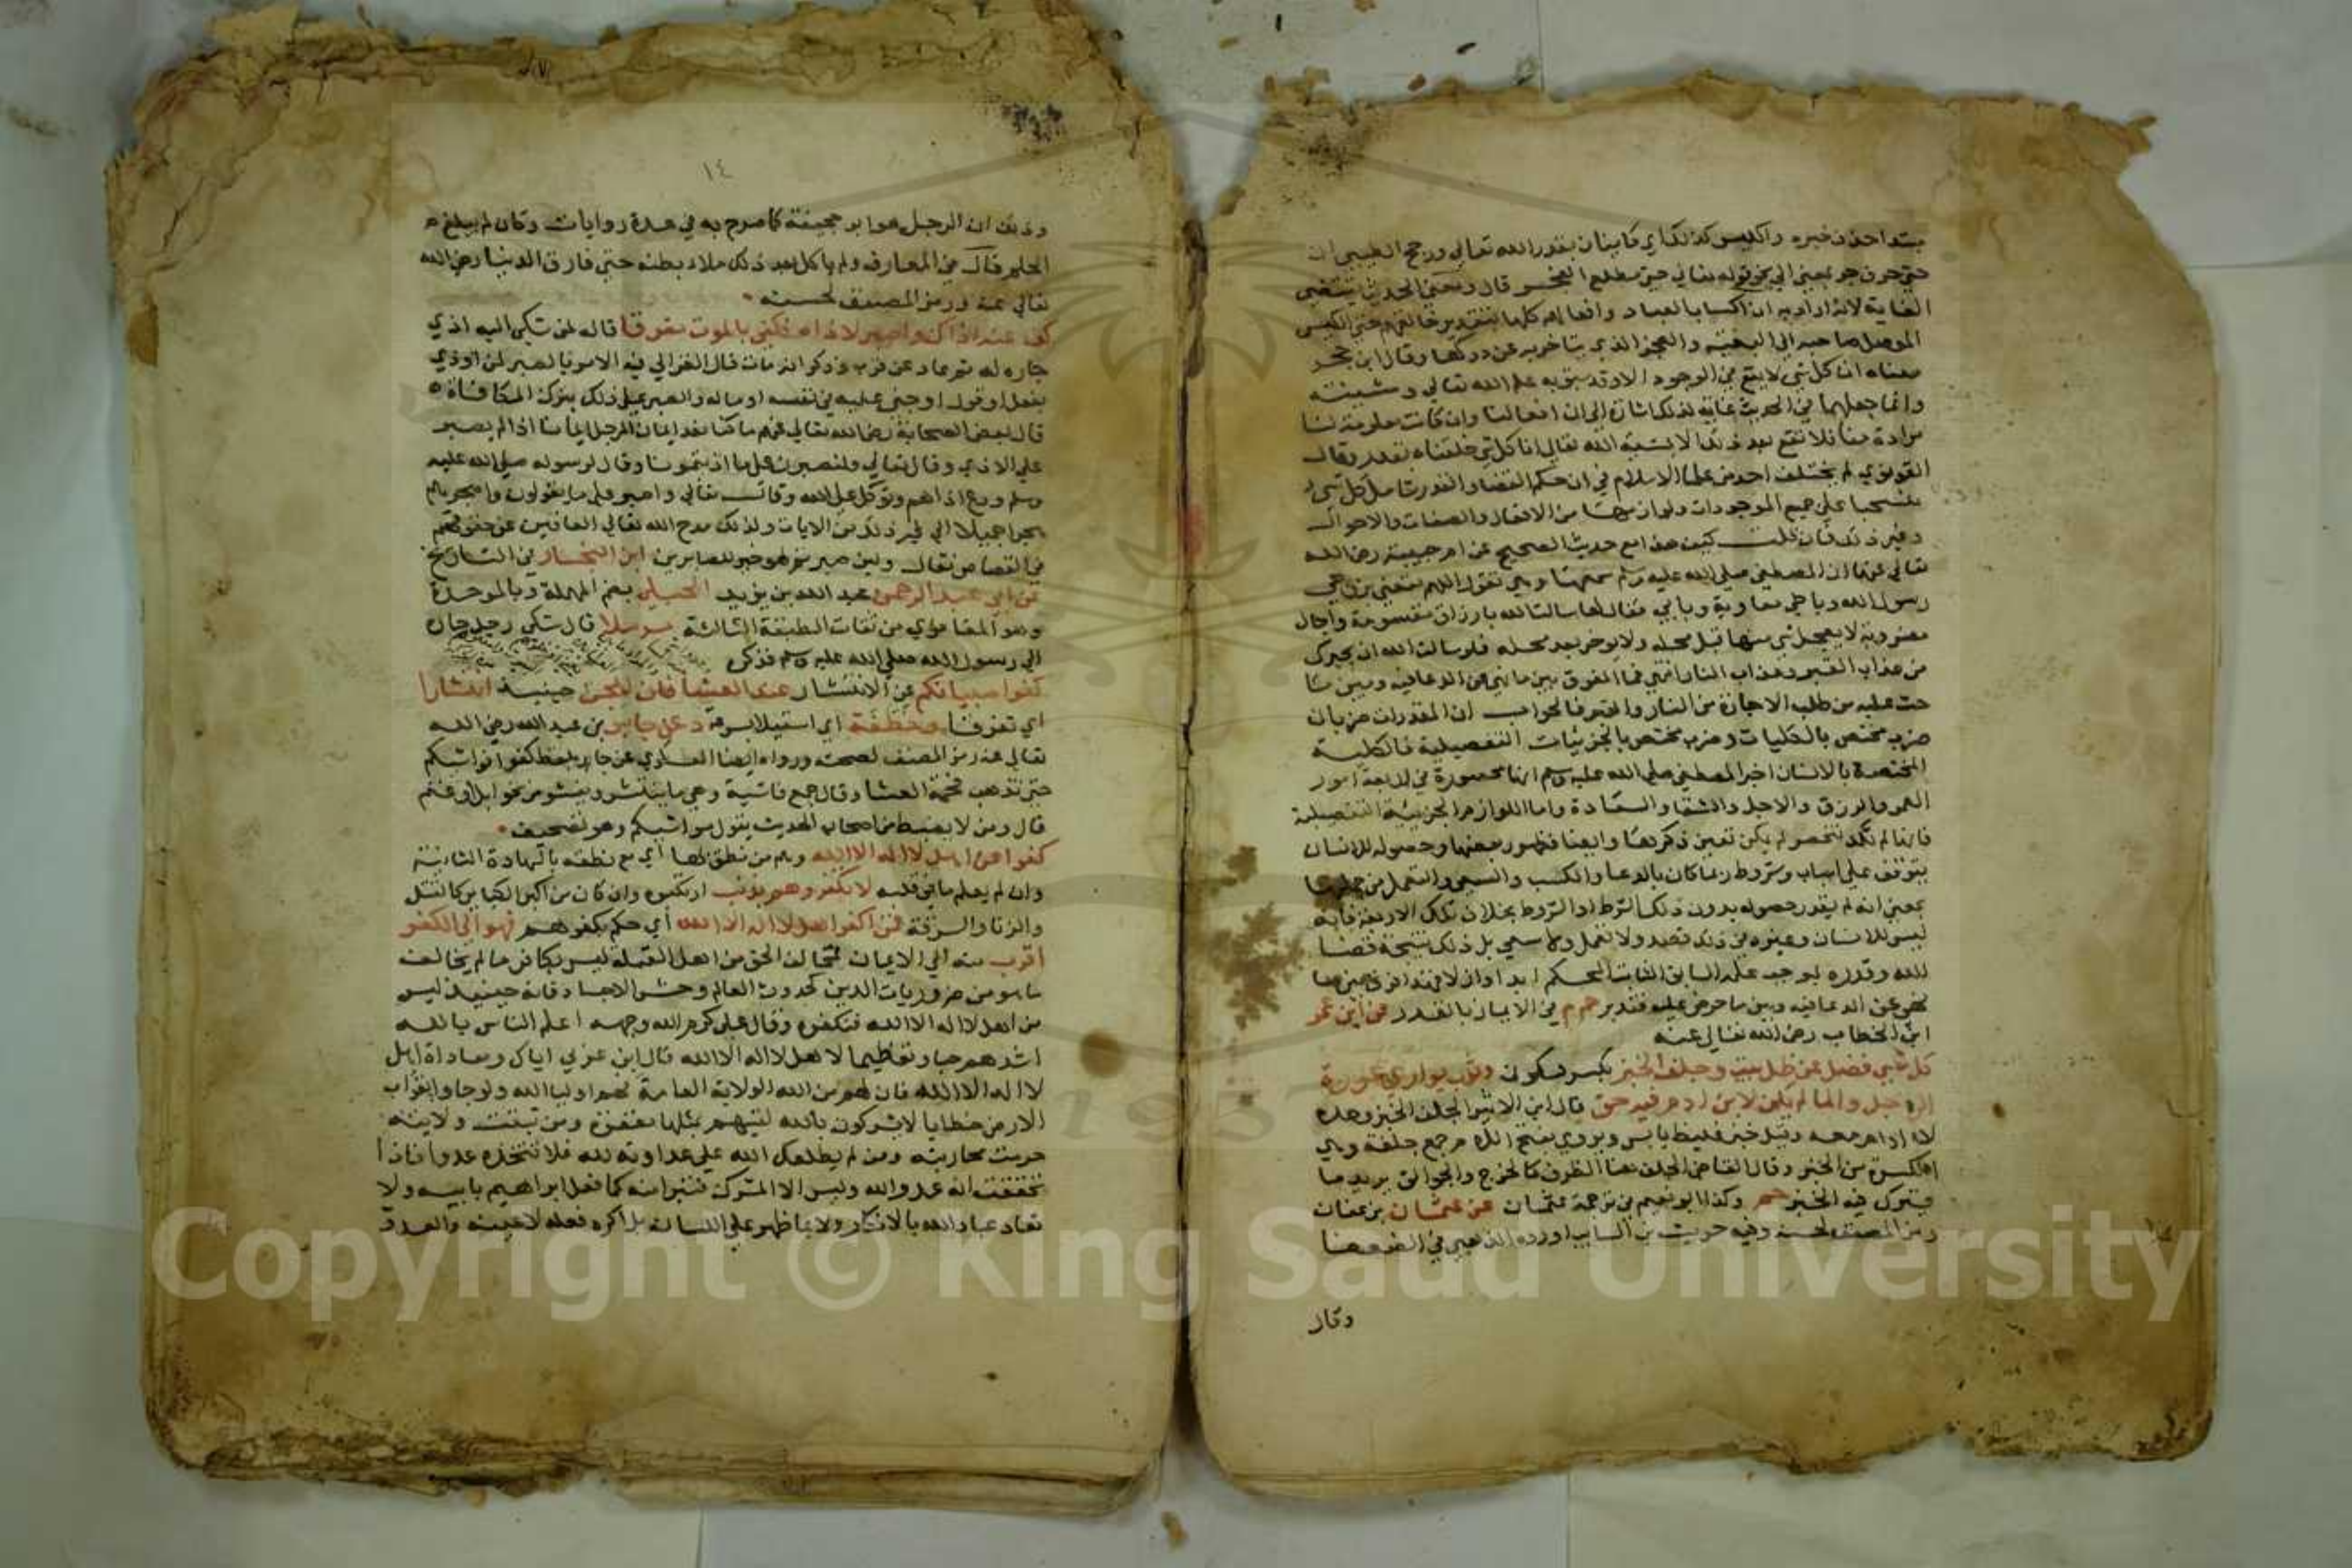 مبتدا حذف خبره والكيس كذلك اي كاينان بقدر الله تعالى ورجح الطيبي ان
حتى حرف جر بمعنى الى نحو قوله تعالى حتى مطلع الفجر قال ومعنى الحديث يقتضي
الغاية لانه اراد به ان اكساب العباد وافعالهم كلها بتقدير خالقهم حتى الكيس
الموصل صاحبه الى البغية والعجز الذي يتاخر به عن دركها وقال ابن حجر
معناه ان كل شي لا يقع في الوجود الا وقد سبق به علم الله تعالى ومشيئته
وانما جعلهما في الحديث غاية لذلك اشارة الى ان افعالنا وان كانت معلومة لنا
مرادة منا فلا تقع مع ذلك الا بمشيئة الله تعالى انا كل شي خلقناه بقدر وقال
القونوي لم يختلف احد من علما الاسلام في ان حكم القضا والقدر شامل كل شي
منسحبا على جميع الموجودات ولوازمها من الافعال والصفات والاحوال
وغير ذلك فان قلت كيف هذا مع حديث الصحيح عن ام حبيبة رضي الله
تعالى عنها ان المصطفى صلى الله عليه وسلم سمعها وهي تقول اللهم متعني بزوجي
رسول الله وباخي معاوية وبابي فقال لها سالت الله بارزاق مقسومة واجال
مضروبة لا يعجل شي منها قبل محله ولا يوخر بعد محله فلو سالت الله ان يجيرك
من عذاب القبر وعذاب النار انتهى فما الفرق بين ما نهى عن الدعا فيه وبين ما
حث عليه من طلب الاجارة من النار والقبر فالجواب ان المقدرات ضربان
ضرب مختص بالكليات وضرب مختص بالجزئيات التفصيلية فالكلية
المختصة بالانسان اخبر المصطفى صلى الله عليه وسلم انها محصورة في اربعة امور
العمر والرزق والاجل والشقا والسعادة واما اللوازم الجزيية التفصيلية
فانها لم تكد تنحصر لم يكن تعين ذكرها وايضا فظهور بعضها وحصوله للانسان
يتوقف على اسباب وشروط ربما كان بالدعا والكسب والسعي والتعمل من جملتها
بمعنى انه لم يقدر حصوله بدون ذلك الشرط او الشروط بخلاف تلك الاربعة فانه
ليس للانسان وغيره في ذلك قصد ولا تعمل ولا سعي بل ذلك نتيجة قضا
الله وقدره بموجب علمه السابق الثابت الحكم
الدعا فيه وبين ما حرض عليه فتدبر حم م في الايمان بالقدر عن ابن عمر
ابن الخطاب رضي الله تعالى عنه
كل شي فضل عن ظل بيت وجلف الخبز بكسر فسكون وثوب يواري عورة
الرجل والما لم يكن لابن ادم فيه حق قال ابن الاثير الجلف الخبز وحده
لا ادام معه وقيل خبز غليظ يابس ويروى بفتح اللام جمع جلفة وهي
الكسرة من الخبز وقال القاضي الجلف هنا الظرف كالخرج والجوالق يريد ما
يترك فيه الخبز حم وكذا ابو نعيم في ترجمة عثمان عن عثمان بن عفان
رمز المصنف لحسنه وفيه حريث بن السايب اورده الذهبي في الضعفا
وقال
١٤
وذلك ان الرجل هو ابو جحيفة كما صرح به في عدة روايات وكان لم يبلغ
الحلم قال في المعارف ولم ياكل بعد ذلك ملاء بطنه حتى فارق الدنيا رضي الله
تعالى عنه ورمز المصنف لحسنه
كف عنه اذاك واصبر لاذاه فكفى بالموت مفرقا قاله لمن شكى اليه اذى
جاره له ثم عاد عن قرب وذكر انه مات قال الغزالي فيه الامر بالصبر لمن اوذي
بفعل او قول او جنى عليه في نفسه او ماله والصبر على ذلك بترك المكافاة
قال بعض الصحابة رضي الله تعالى عنهم ما كنا نعد ايمان الرجل ايمانا اذا لم يصبر
على الاذى وقال تعالى ولنصبرن على ما اذيتمونا وقال لرسوله صلى الله عليه
وسلم ودع اذاهم وتوكل على الله وقال تعالى واصبر على ما يقولون واهجرهم
هجرا جميلا الى غير ذلك من الايات ولذلك مدح الله تعالى العافين عن حقوقهم
في القصاص فقال ولين صبرتم لهو خير للصابرين ابن النجار في التاريخ
عن ابي عبد الرحمن عبد الله بن يزيد الحبلي بضم المهملة وبالموحدة
وهو المعافري من ثقات الطبقة الثالثة مرسلا قال شكى رجل جاره
الى رسول الله صلى الله عليه وسلم فذكره
كفوا صبيانكم عن الانتشار عند العشا فان للجن حينيذ انتشارا
اي تفرقا وخطفة اي استيلا بسرعة د عن جابر بن عبد الله رضي الله
تعالى عنه رمز المصنف لصحته ورواه ايضا العسكري عن جابر بلفظ كفوا فواشيكم
حتى تذهب فحمة العشا وقال جمع فاشية وهي ما ينتشر ويفشو من نحو ابل وغنم
قال ومن لا يضبط من اصحاب الحديث يقول مواشيكم وهو تصحيف
كفوا عن اهل لا اله الا الله وهم من نطق بها اي مع نطقه بالشهادة الثانية
وان لم يعلم ما في قلبه لا تكفروهم بذنب ارتكبوه وان كان من اكبر الكباير كالقتل
والزنا والسرقة فمن اكفر اهل لا اله الا الله اي حكم بكفرهم فهو الى الكفر
اقرب منه الى الايمان فمخالف الحق من اهل القبلة ليس بكافر ما لم يخالف
ما هو من ضروريات الدين كحدوث العالم وحشر الاجساد فانه حينيذ ليس
من اهل لا اله الا الله فنكفره وقال علي كرم الله وجهه اعلم الناس بالله
اشدهم حبا وتعظيما لاهل لا اله الا الله قال ابن عربي اياك ومعاداة اهل
لا اله الا الله فان لهم من الله الولاية العامة فهم اوليا الله ولو جاوا بقراب
الارض خطايا لا يشركون بالله لقيهم بمثلها مغفرة ومن ثبتت ولايته
حرمت محاربته ومن لم يطلعك الله على عداوته لله فلا تتخذه عدوا فاذا
تحققت انه عدو الله وليس الا المشرك فتبرا منه كما فعل ابراهيم بابيه ولا
تعاد عباد الله بالامكان ولا بما ظهر على اللسان بل اكره فعله لا عينه والعدو
Copyright © King Saud University
1957